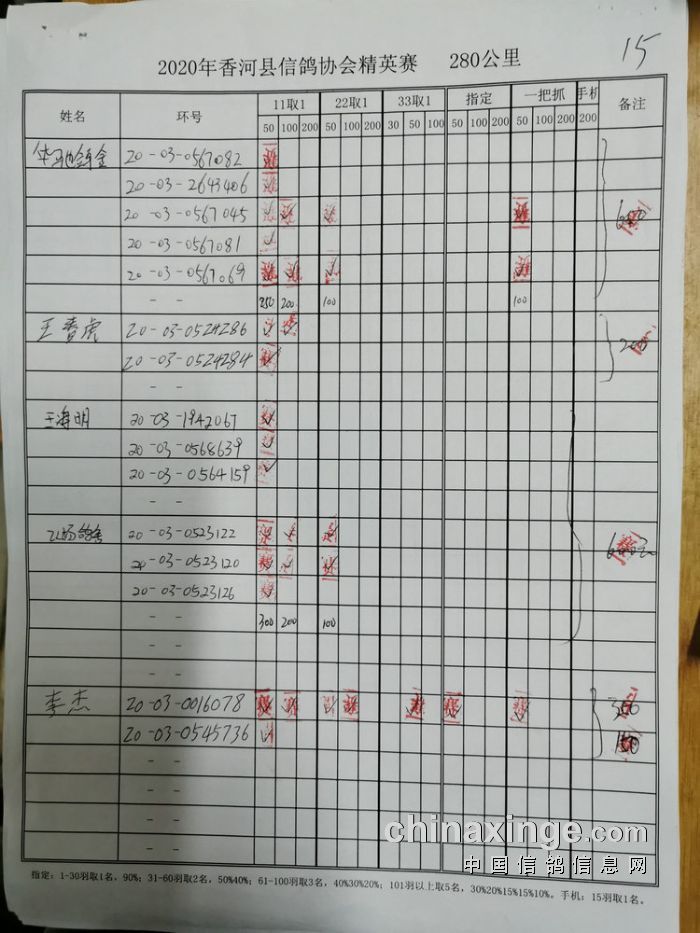 15
2020年香河县信鸽协会精英赛 280公里
姓名 环号 11取1 22取1 33取1 指定 一把抓 手机 备注
50 100 200 50 100 200 30 50 100 50 100 200 50 100 200 200
20-03-0567082
20-03-2643406
20-03-0567045
20-03-0567081
20-03-0567069
- - 250 200 100 100
王春虎 20-03-0524286
20-03-0524284
- -
王海明 20-03-1942067
20-03-0568639
20-03-0564159
- -
20-03-0523122
20-03-0523120
20-03-0523126
- - 300 200 100
- -
- -
李杰 20-03-0016078
20-03-0545736
- -
- -
- -
- -
chinaxinge.com
中国信鸽信息网
指定：1-30羽取1名，90%；31-60羽取2名，50%40%；61-100羽取3名，40%30%20%；101羽以上取5名，30%20%15%15%10%。手机：15羽取1名。